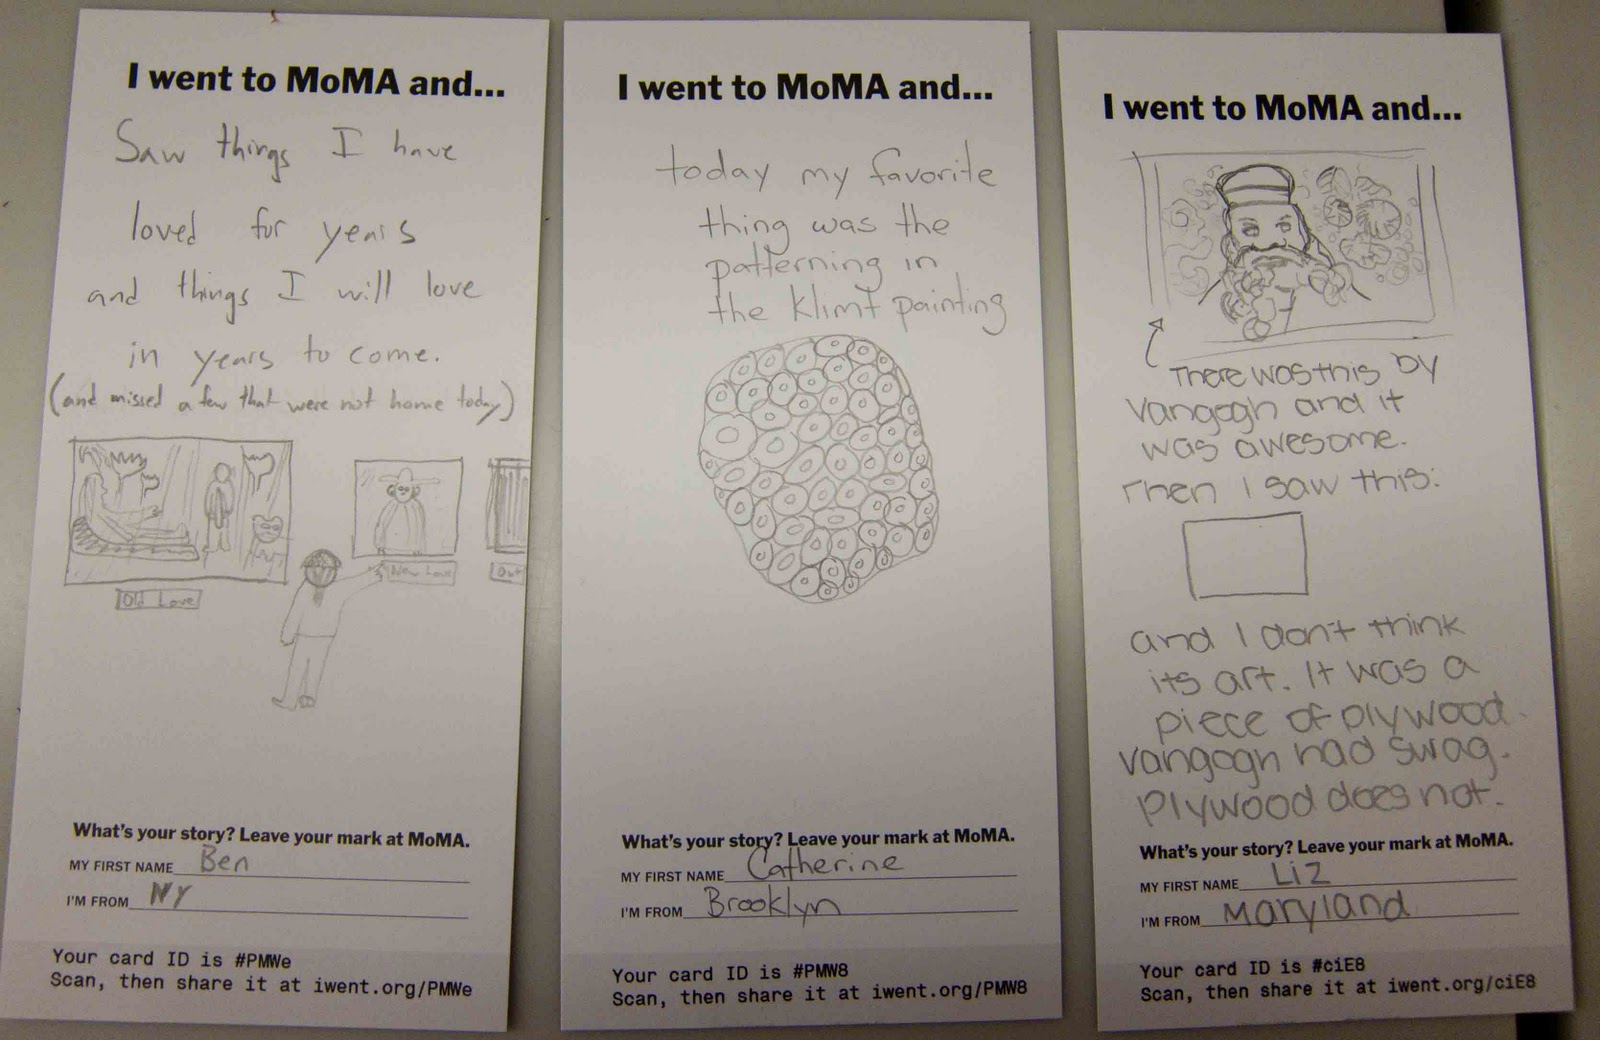 I went to MoMA and...
Saw things I have
loved for years
and things I will love
in years to come.
(and missed a few that were not home today)
Old Love
New Love
What's your story? Leave your mark at MoMA.
MY FIRST NAME Ben
I'M FROM NY
Your card ID is #PMWe
Scan, then share it at iwent.org/PMWe
I went to MoMA and...
today my favorite
thing was the
patterning in
the Klimt painting
What's your story? Leave your mark at MoMA.
MY FIRST NAME Catherine
I'M FROM Brooklyn
Your card ID is #PMW8
Scan, then share it at iwent.org/PMW8
I went to MoMA and...
There was this by
Vangogh and it
was awesome.
Then I saw this:
and I don't think
its art. It was a
piece of plywood.
Vangogh had swag.
Plywood does not.
What's your story? Leave your mark at MoMA.
MY FIRST NAME Liz
I'M FROM Maryland
Your card ID is #ciE8
Scan, then share it at iwent.org/ciE8